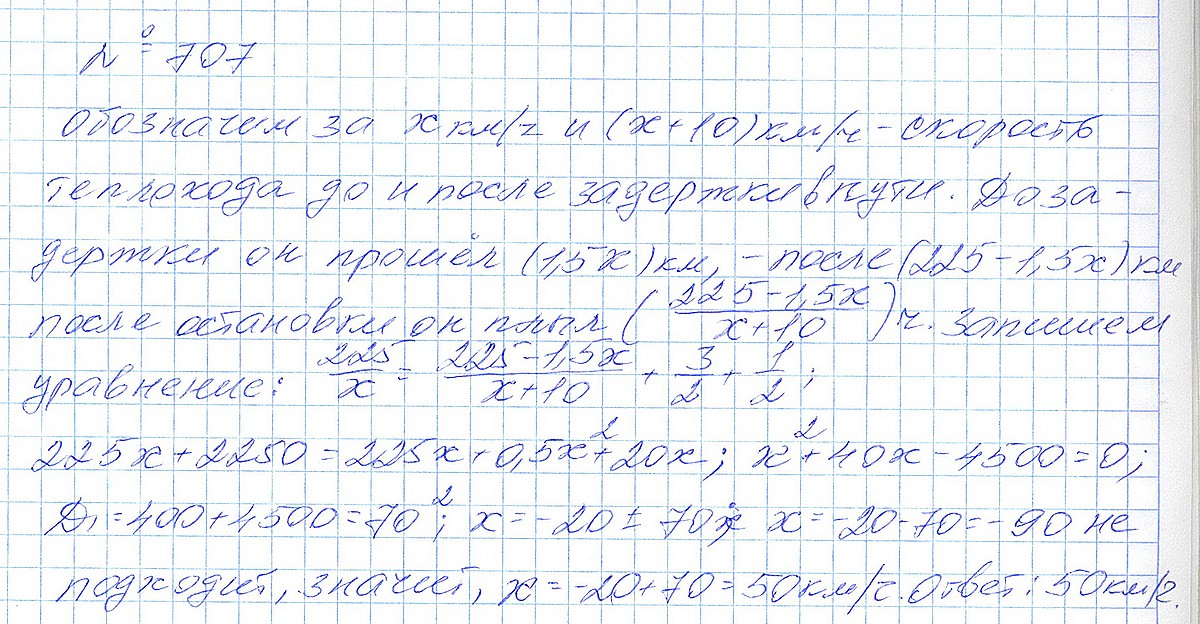 № 707
обозначим за x км/ч и (x+10) км/ч - скорость
теплохода до и после задержки в пути. До за-
держки он прошёл (1,5x) км, - после (225-1,5x) км
после остановки он плыл ((225-1,5x)/(x+10)) ч. Запишем
уравнение: 225/x = (225-1,5x)/(x+10) + 3/2 + 1/2;
225x+2250=225x+0,5x²+20x; x²+40x-4500=0;
D₁=400+4500=70²; x=-20±70; x=-20-70=-90 не
подходит, значит, x=-20+70=50км/ч. Ответ: 50км/ч.